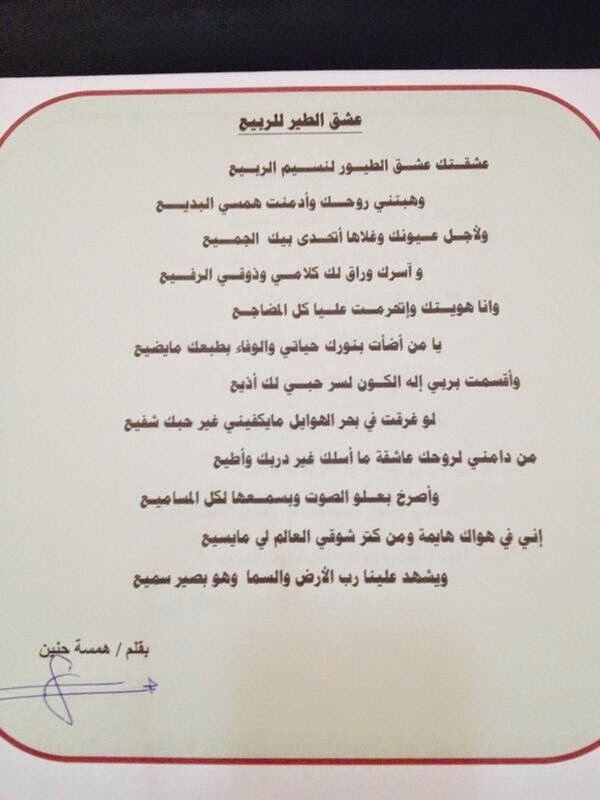 عشق الطير للربيع
عشقتك عشق الطيور لنسيم الربيع
وهبتني روحك وأدمنت همسي البديع
ولأجل عيونك وغلاها أتحدى بيك الجميع
و آسرك وراق لك كلامي وذوقي الرفيع
وانا هويتك وإتحرمت عليا كل المضاجع
يا من أضأت بنورك حياتي والوفاء بطبعك مايضيع
وأقسمت بربي إله الكون لسر حبي لك أذيع
لو غرقت في بحر الهوايل مايكفيني غير حبك شفيع
من دامني لروحك عاشقة ما أسلك غير دربك وأطيع
وأصرخ بعلو الصوت ويسمعها لكل المساميع
إني في هواك هايمة ومن كتر شوقي العالم لي مايسيع
ويشهد علينا رب الأرض والسما وهو بصير سميع
بقلم / همسة حنين